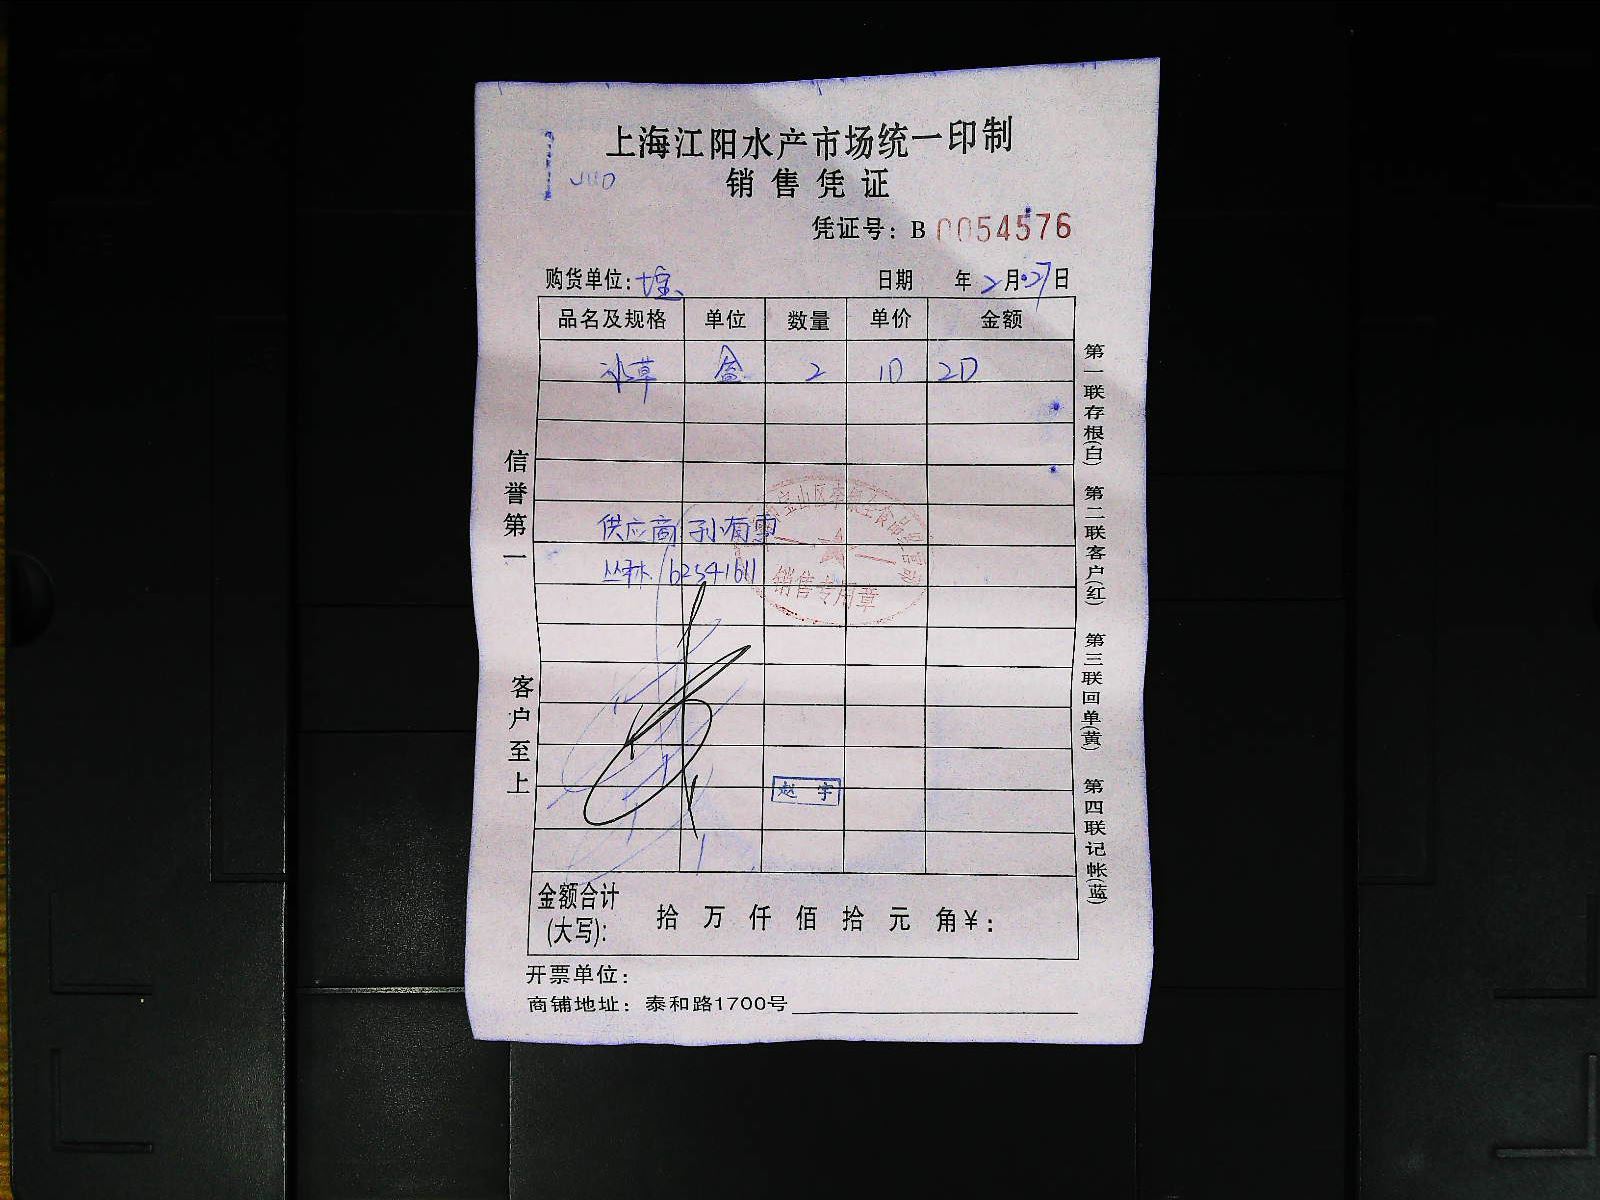 上海江阳水产市场统一印制
销售凭证
凭证号：B 0054576
购货单位：
日期 年2月27日
品名及规格 单位 数量 单价 金额
冰草 盒 2 10 20
供应商 孙有雪
丛林 62541611
销售专用章
赵宇
金额合计(大写)： 拾 万 仟 佰 拾 元 角¥：
开票单位：
商铺地址：泰和路1700号
信誉第一 客户至上
第一联存根(白) 第二联客户(红) 第三联回单(黄) 第四联记帐(蓝)